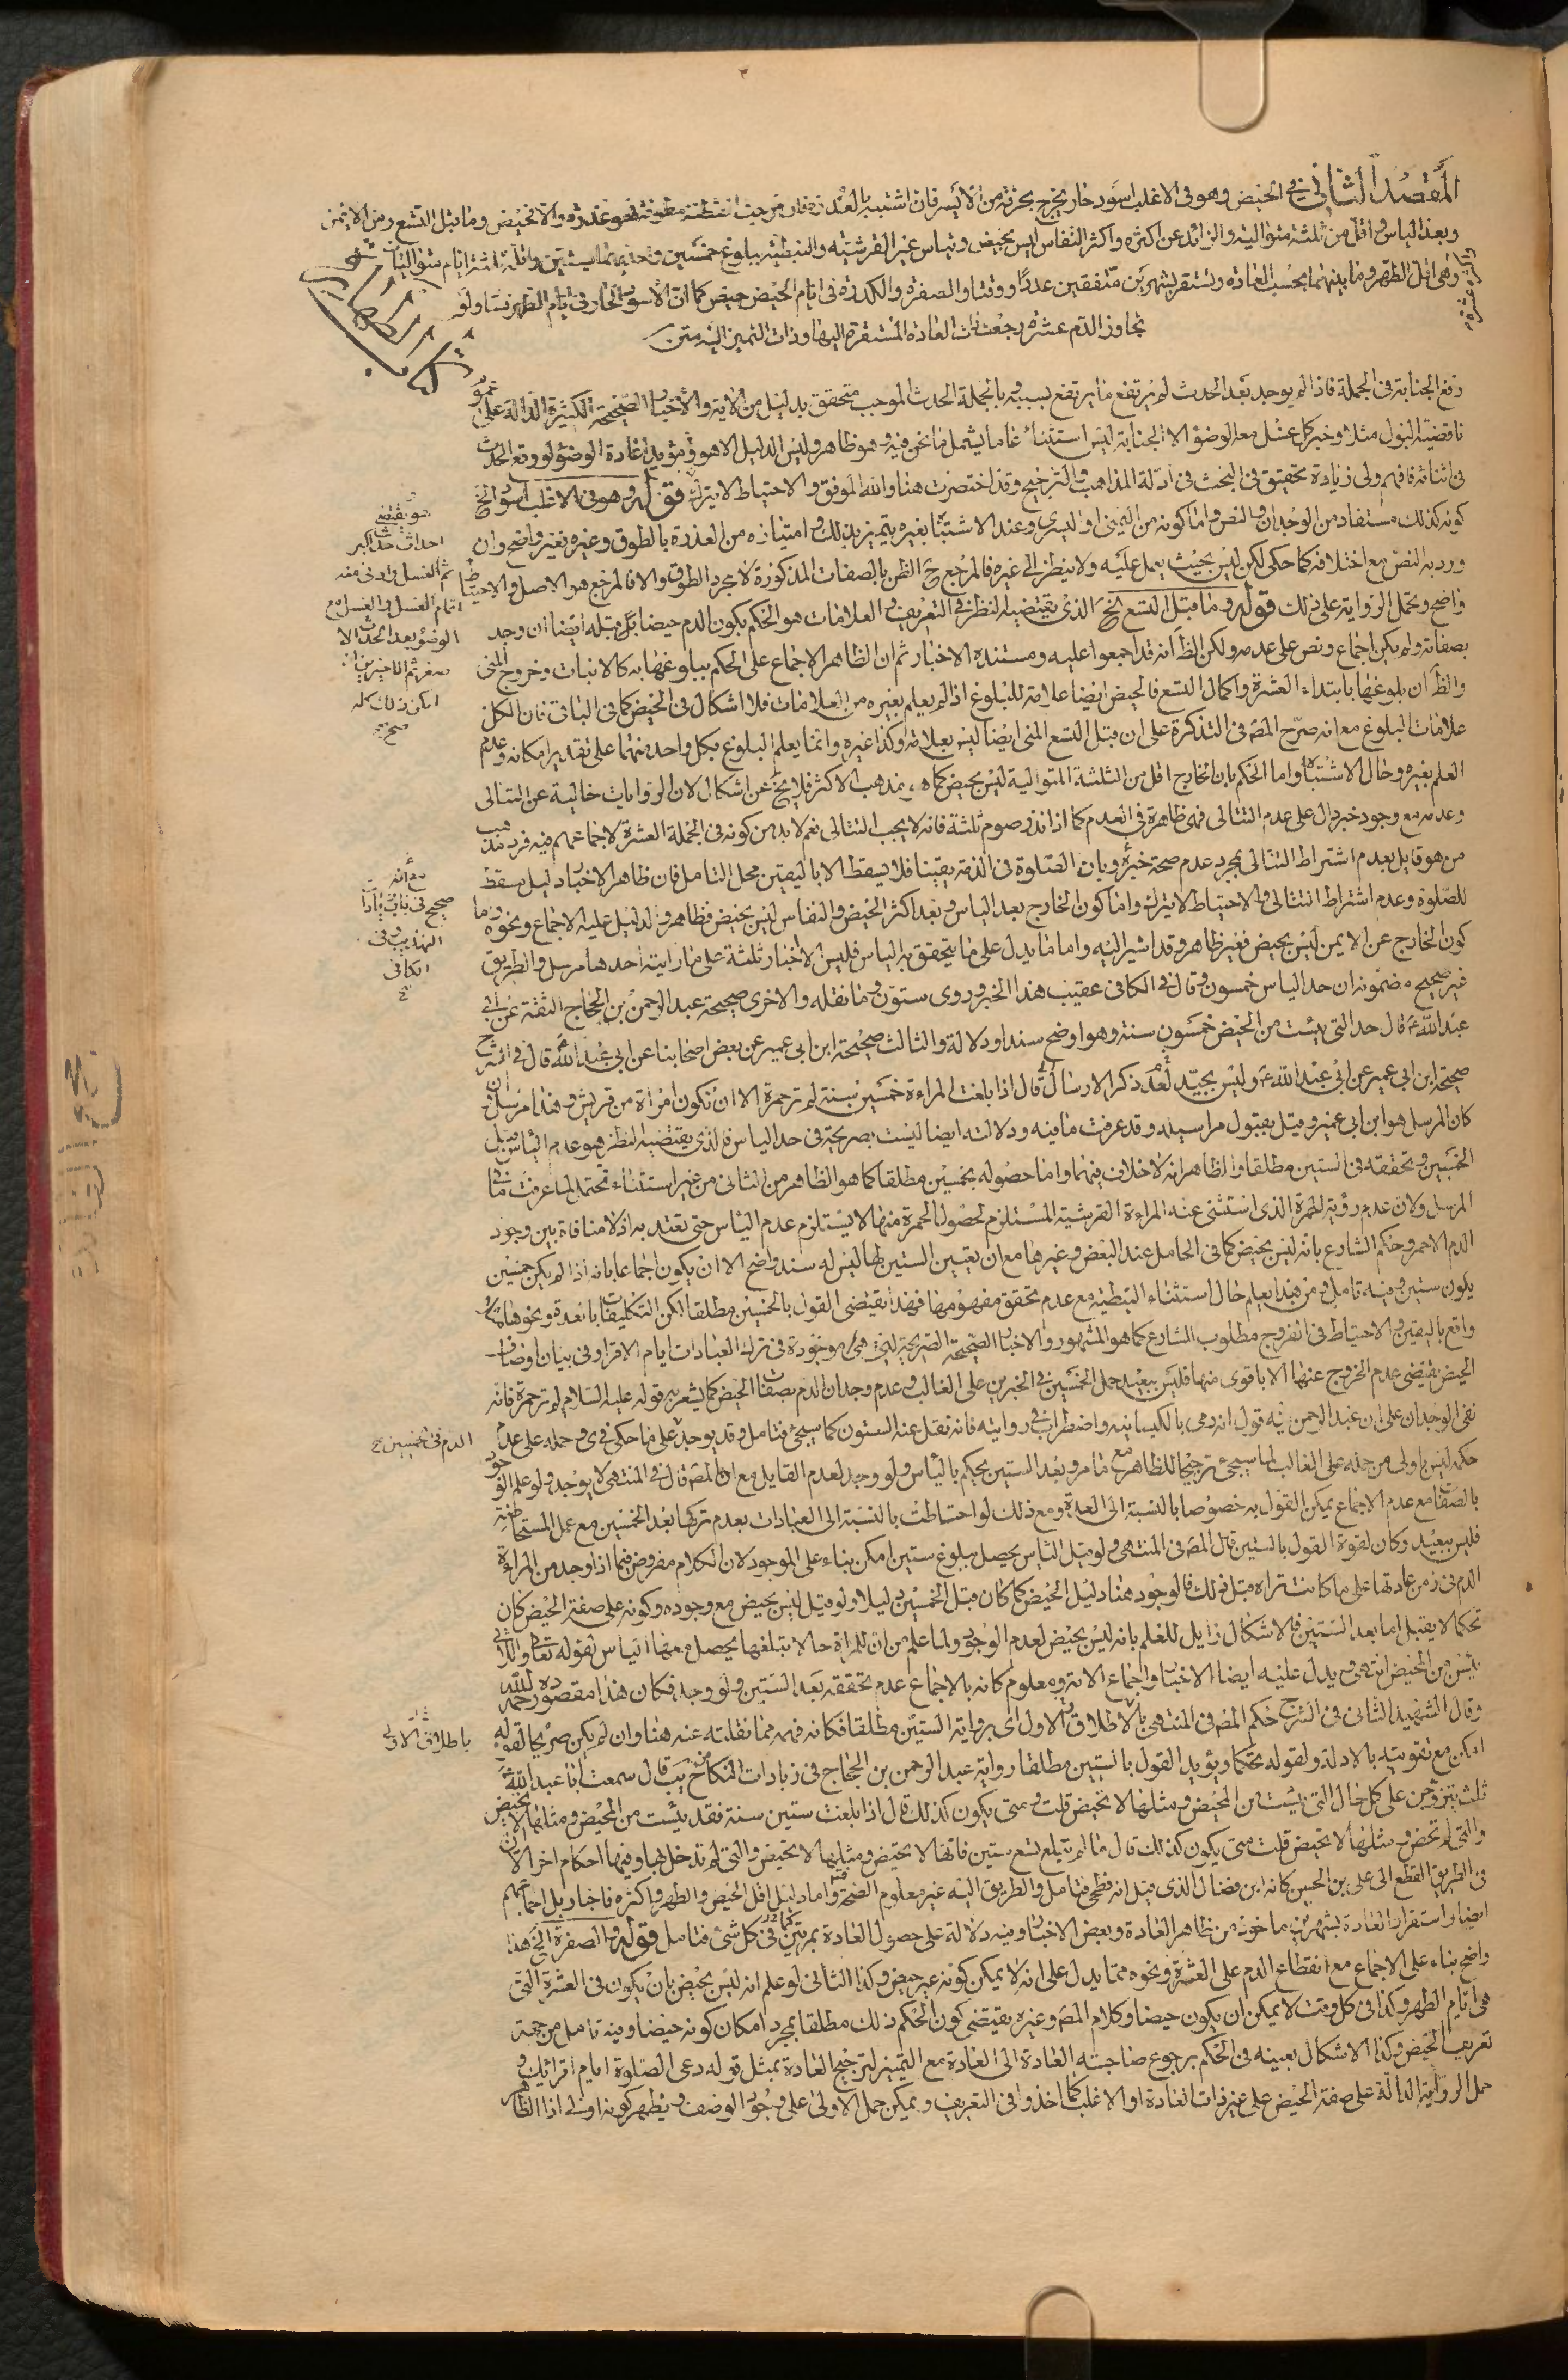 المقصد الثاني في الحيض وهو في الاغلب اسود حار يخرج بحرقة من الايسر فان اشتبه بالعذرة فان خرجت القطنة مطوقة فهو عذرة والا فحيض وما قبل التسع ومن الايمن
وبعد الياس واقل من ثلثة متوالية والزائد عن اكثره واكثر النفاس ليس بحيض وتياس غير القرشية والنبطية ببلوغ خمسين واحديهما بستين واقله ثلثة ايام متواليات
واكثره عشرة
وهي اقل الطهر وما بينهما بحسب العادة وتستقر بشهرين متفقين عددا ووقتا والصفرة والكدرة في ايام الحيض حيض كما ان الاسود الحار في ايام الطهر فساد ولو
تجاوز الدم عشرة رجعت ذات العادة المستقرة اليها وذات التميز اليه متن
كتاب الطهارة
رفع الجنابة في الجملة فاذا لم يوجد بعد الحدث لم يرتفع ما يرتفع بسببه وبالجملة الحدث الموجب متحقق بدليل من الاية والاخبار الصحيحة الكثيرة الدالة على
ناقضية البول مثلا وخبر كل غسل معه الوضوء الا الجنابة ليس استثناء عاما يشمل ما نحن فيه وهو ظاهر وليس الدليل الا هو ومؤيد اعادة الوضوء لو وقع الحدث
في اثنائه فافهم ولي زيادة تحقيق في البحث في ادلة المذاهب والترجيح وقد اختصرت هنا والله الموفق والاحتياط لا يترك قوله وهو في الاغلب اسود الخ
كونه كذلك مستفاد من الوجدان والنص واما كونه من اليمنى او اليسرى وعند الاشتباه بغيره يتميز بذلك وامتيازه من العذرة بالطوق وغيره بغير واضح وان
ورد به النص مع اختلافه كما حكى لكن ليس بحيث يعمل عليه ولا ينظر الى غيره فالمرجع ح الظن بالصفات المذكورة لا مجرد الطوق والا فالمرجع هو الاصل والاحتياط
واضح ويحمل الرواية على ذلك قوله وما قبل التسع الخ الذي يقتضيه النظر في التعريف والعلامات هو الحكم بكون الدم حيضا بل قبله ايضا ان وجد
بصفاته ولم يكن اجماع ونص على عدمه ولكن الظ انه قد اجمعوا عليه ومستنده الاخبار ثم ان الظاهر الاجماع على الحكم ببلوغها به كالانبات وخروج المنى
والظ ان بلوغها بابتداء العشرة واكمال التسع فالحيض ايضا علامة للبلوغ اذا لم يعلم بغيره من العلامات فلا اشكال في الحيض كما في الباقى فان الكل
علامات البلوغ مع انه صرح المص في التذكرة على ان قبل التسع المنى ايضا ليس بعلامة وكذا غيره وانما يعلم البلوغ بكل واحد منهما على تقدير امكانه وعدم
العلم بغيره وحال الاشتباه واما الحكم بان الخارج اقل من الثلثة المتوالية ليس بحيض كما هو مذهب الاكثر فلا يخ عن اشكال لان الروايات خالية عن التتالى
وعدمه مع وجود خبر دال على عدم التتالى فهى ظاهرة في العدم كما اذا نذر صوم ثلثة فانه لا يجب التتالى نعم لا بد من كونه في الجملة العشرة لاجماعهم فيه فرد مذهب
من هو قايل بعدم اشتراط التتالى بمجرد عدم صحة خبره وبان الصلوة في الذمة يقينا فلا يسقط الا باليقين محل التامل فان ظاهر الاخبار دليل يسقط
للصلوة وعدم اشتراط التتالى والاحتياط لا يترك واما كون الخارج بعد الياس وبعد اكثر الحيض والنفاس ليس بحيض فظاهر والدليل عليه الاجماع ونحوه واما
كون الخارج عن الايمن ليس بحيض فغير ظاهر وقد اشير اليه واما ما يدل على ما يتحقق به الياس فليس الا اخبار ثلثة على ما رايته احدها مرسل والطريق
غير صحيح مضمونه ان حد الياس خمسون وقال في الكافى عقيب هذا الخبر وروى ستون وما نقله والاخرى صحيحة عبد الرحمن بن الحجاج الثقة عن ابي
عبد الله ع قال حد التى يئست من الحيض خمسون سنة وهو اوضح سندا ودلالة والثالث صحيحة ابن ابي عمير عن بعض اصحابنا عن ابي عبد الله ع قال في الشرح
صحيحة ابن ابي عمير عن ابي عبد الله ع وليس بجيد لعدم ذكر الارسال قال اذا بلغت المراءة خمسين سنة لم تر حمرة الا ان تكون امراة من قريش وهذا مرسل وان
كان المرسل هو ابن ابي عمير وقيل بقبول مراسيله وقد عرفت ما فيه ودلالته ايضا ليست بصريحة في حد الياس فالذي يقتضيه النظر هو عدم الياس قبل
الخمسين وتحققه في الستين مطلقا والظاهر انه لا خلاف فيهما واما حصوله بخمسين مطلقا كما هو الظاهر من الثانى من غير استثناء تحتمل لما عرفت ما في
المرسل ولان عدم رؤية الحمرة الذى استثنى عنه المراءة القرشية المستلزم لحصول الحمرة منها لا يستلزم عدم الياس حتى تعتد به اذ لا منافاة بين وجود
الدم الاحمر وحكم الشارع بانه ليس بحيض كما في الحامل عند البعض وغيرها مع ان تعيين الستين لها ليس له سند واضح الا ان يكون اجماعا بانه اذا لم يكن خمسين
يكون ستين وفيه تامل ومن هنا يعلم حال استثناء النبطية مع عدم تحقق مفهومها فهذا يقتضى القول بالخمسين مطلقا لكن التكليفات بالعدة ونحوها
واقع باليقين والاحتياط في الفروج مطلوب الشارع كما هو المشهور والاخبار الصحيحة الصريحة التى هى موجودة في ترك العبادات ايام الاقراء وفي بيان اوصاف
الحيض يقتضى عدم الخروج عنها الا باقوى منها فليس ببعيد حمل الخمسين في الخبرين على الغالب وعدم وجدان الدم بصفات الحيض كما يشعر به قوله عليه السلام لم تر حمرة فانه
نفى الوجدان على ان عبد الرحمن فيه قول انه رمى بالكيسانية واضطراب في روايته فانه نقل عنه الستون كما سيجئ فتامل وقد يوجد على ما حكى في ى وحمله على عدم
حكمه ليس باولى من حمله على الغالب لما سيجئ ترجيحا للظاهر مع ما مر وبعد الستين يحكم بالياس ولو وجد لعدم القايل مع ان المص قال في المنتهى لا يوجد ولو علم الوجود
بالصفات مع عدم الاجماع يمكن القول به خصوصا بالنسبة الى العدة ومع ذلك لو احتاطت بالنسبة الى العبادات بعدم تركها بعد الخمسين مع عمل المستحاضة
فليس ببعيد وكان لقوة القول بالستين قال المص في المنتهى ولو قيل الياس يحصل ببلوغ ستين امكن بناء على الموجود لان الكلام مفروض فيما اذا وجد من المراءة
الدم في زمن عادتها على ما كانت تراه قبل ذلك فالوجود هنا دليل الحيض كما كان قبل الخمسين دليلا ولو قيل ليس بحيض مع وجوده وكونه على صفة الحيض كان
تحكما لا يقبل اما بعد الستين فلا اشكال زايل للعلم بانه ليس بحيض لعدم الوجود ولما علم من ان للمراة حالا تبلغها يحصل معها الياس لقوله تعالى واللائى
يئسن من المحيض انتهى ويدل عليه ايضا الاخبار واجماع الامة ومعلوم كانه بالاجماع عدم تحققه بعد الستين ولو وجد فكان هذا مقصوده رحمه الله
وقال الشهيد الثانى في الشرح حكم المص في المنتهى بالاطلاق الاول اى برواية الستين مطلقا فكانه فهمه مما نقلته عنه هنا وان لم يكن صريحا لقوله
امكن مع تقويته بالادلة ولقوله تحكما ويؤيد القول بالستين مطلقا رواية عبد الرحمن بن الحجاج في زيادات النكاح من يب قال سمعت ابا عبد الله ع
ثلث يتزوجن على كل حال التى يئست من المحيض ومثلها لا تحيض قلت ومتى يكون كذلك قال اذا بلغت ستين سنة فقد يئست من المحيض ومثلها لا تحيض
والتى لم تحض ومثلها لا تحيض قلت متى يكون كذلك قال ما لم تبلغ تسع سنين فانها لا تحيض ومثلها لا تحيض والتى لم تدخل بها وفيها احكام اخر الا ان
في الطريق القطع الى على بن الحسن كانه ابن فضال الذى قيل انه فطحى فتامل والطريق اليه غير معلوم الصحة واما دليل اقل الحيض والطهر واكثره فاخبار بل اجماعهم
ايضا واستقرار العادة بشهرين ماخوذ من ظاهر العادة وبعض الاخبار وفيه دلالة على حصول العادة بمرتين في كل شئ فتامل قوله والصفرة الخ هذا
واضح بناء على الاجماع مع انقطاع الدم على العشرة ونحوه مما يدل على انه لا يمكن كونه غير حيض وكذا الثانى لو علم انه ليس بحيض بان يكون في العشرة التى
هى ايام الطهر وكذا في كل وقت لا يمكن ان يكون حيضا وكلام المص وغيره يقتضى كون الحكم ذلك مطلقا بمجرد امكان كونه حيضا وفيه تامل من جهة
تعريف الحيض وكذا الاشكال بعينه في الحكم برجوع صاحبته العادة الى العادة مع التميز لترجيح العادة بمثل قوله دعى الصلوة ايام اقرائك و
حمل الرواية الدالة على صفة الحيض على غير ذات العادة او الاغلب كما اخذوا في التعريف ويمكن حمل الاولى على وجود الوصف ويظهر كونه اولى اذا الظاهر
هو يقتضى
احداث حدث اكبر
ثم الغسل وادنى منه
اتمام الغسل والغسل مع
الوضوء بعد الحدث الا
صغر ثم التاخيرين ان
امكن ذلك كله
صح
مع انه
صحيح في باب زيادات
التهذيب وفي
الكافى
الدم في خمسين
باطلاق الاولى